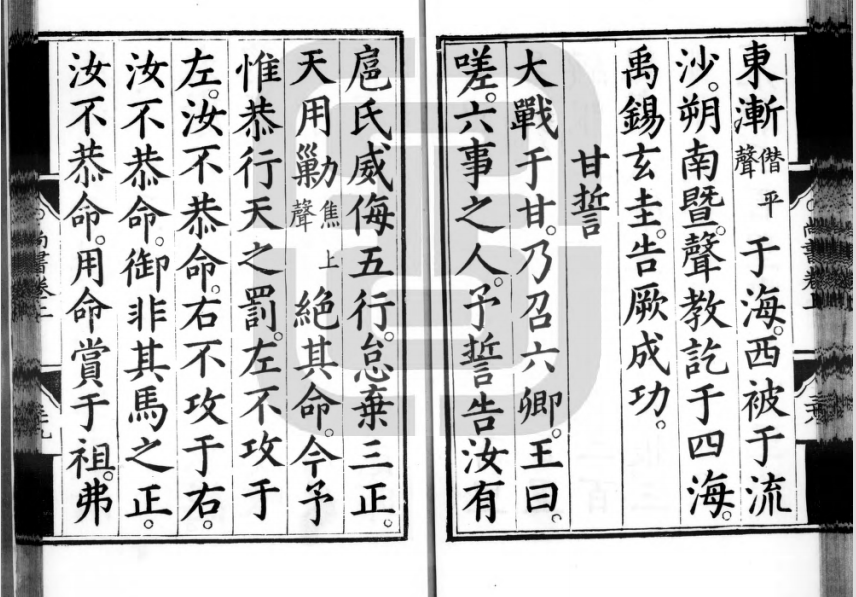 東漸僭平聲于海。西被于流
沙。朔南暨。聲教訖于四海。
禹錫玄圭。告厥成功。
甘誓
大戰于甘。乃召六卿。王曰。
嗟。六事之人。予誓告汝有
扈氏威侮五行。怠棄三正。
天用勦焦上聲絶其命。今予
惟恭行天之罰。左不攻于
左。汝不恭命。右不攻于右。
汝不恭命。御非其馬之正。
汝不恭命。用命賞于祖。弗